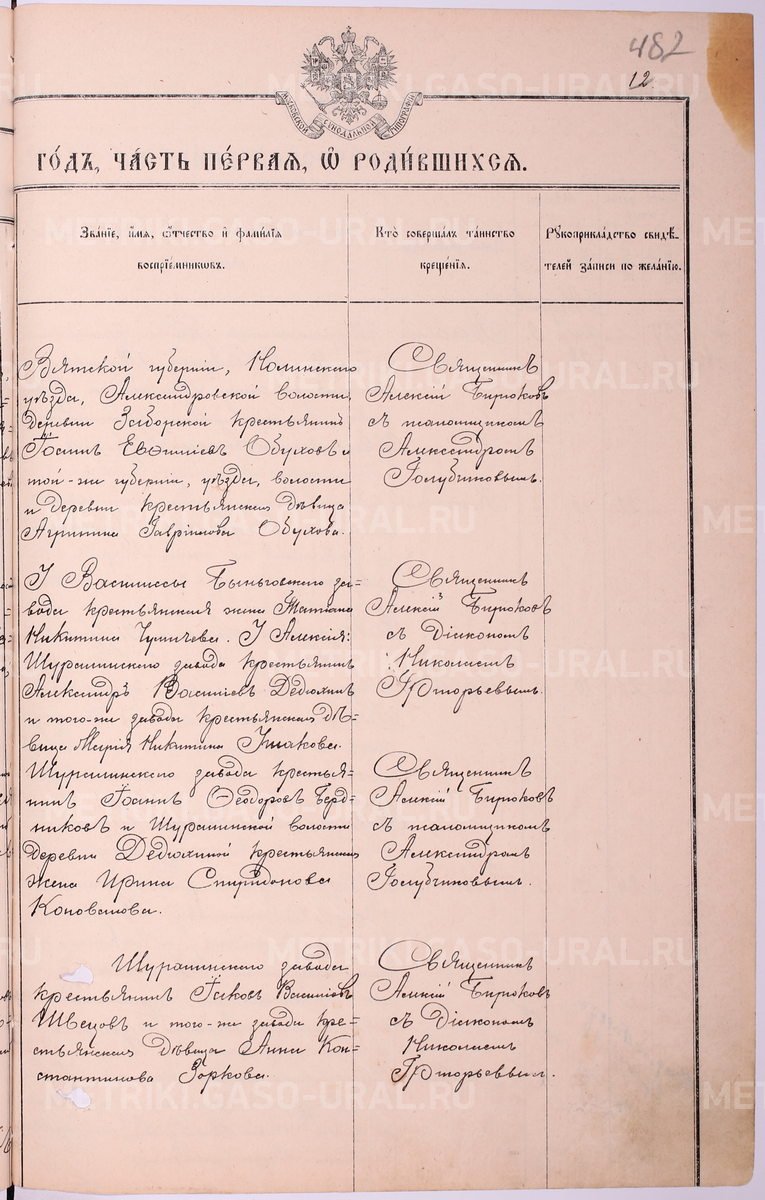 482
12
МОСКОВСКОЙ СѴНОДАЛЬНОЙ ТИПОГРАФІИ
ГО́ДЪ, ЧА́СТЬ ПЕ́РВАЯ, Ѡ҆ РОДИ́ВШИХСЯ.
Зва́нїе, и҆́мя, ѻ҆́тчество и҆ фами́лїя
воспрїе́мникѡвъ.
Кто̀ соверша́лъ та́инство
креще́нїя.
Рꙋкоприкла́дство свидѣ́-
телей за́писи по жела́нїю.
Вятской губерніи, Нолинскаго
уѣзда, Александровской волости,
деревни Заборской крестьянинъ
Іоаннъ Евѳиміевъ Обуховъ и
той-же губерніи, уѣзда, волости
и деревни крестьянская дѣвица
Агрипина Гавріилова Обухова.
Священникъ
Алексій Бирюковъ
съ псаломщикомъ
Александромъ
Голубчиковымъ.
У Василиссы: Быньговскаго за=
вода крестьянская жена Татіана
Никитина . У Алексія:
Шуралинскаго завода крестьянинъ
Александръ Василіевъ Дедюхинъ
и того-же завода крестьянская дѣ=
вица Марія Никитина .
Священникъ
Алексій Бирюковъ
съ Діакономъ
Николаемъ
Григорьевымъ.
Шуралинскаго завода крестья=
нинъ Іоаннъ Ѳеодоровъ Берд=
никовъ и Шуралинской волости
деревни Дедюхиной крестьянская
жена Ирина Спиридонова
Коновалова.
Священникъ
Алексій Бирюковъ
съ псаломщикомъ
Александромъ
Голубчиковымъ.
Шуралинскаго завода
крестьянинъ Іаковъ Василіевъ
Швецовъ и того-же завода кре=
стьянская дѣвица Анна Кон=
стантинова Зоркова.
Священникъ
Алексій Бирюковъ
съ Діакономъ
Николаемъ
Григорьевымъ.
METRIKI.GASO-URAL.RU